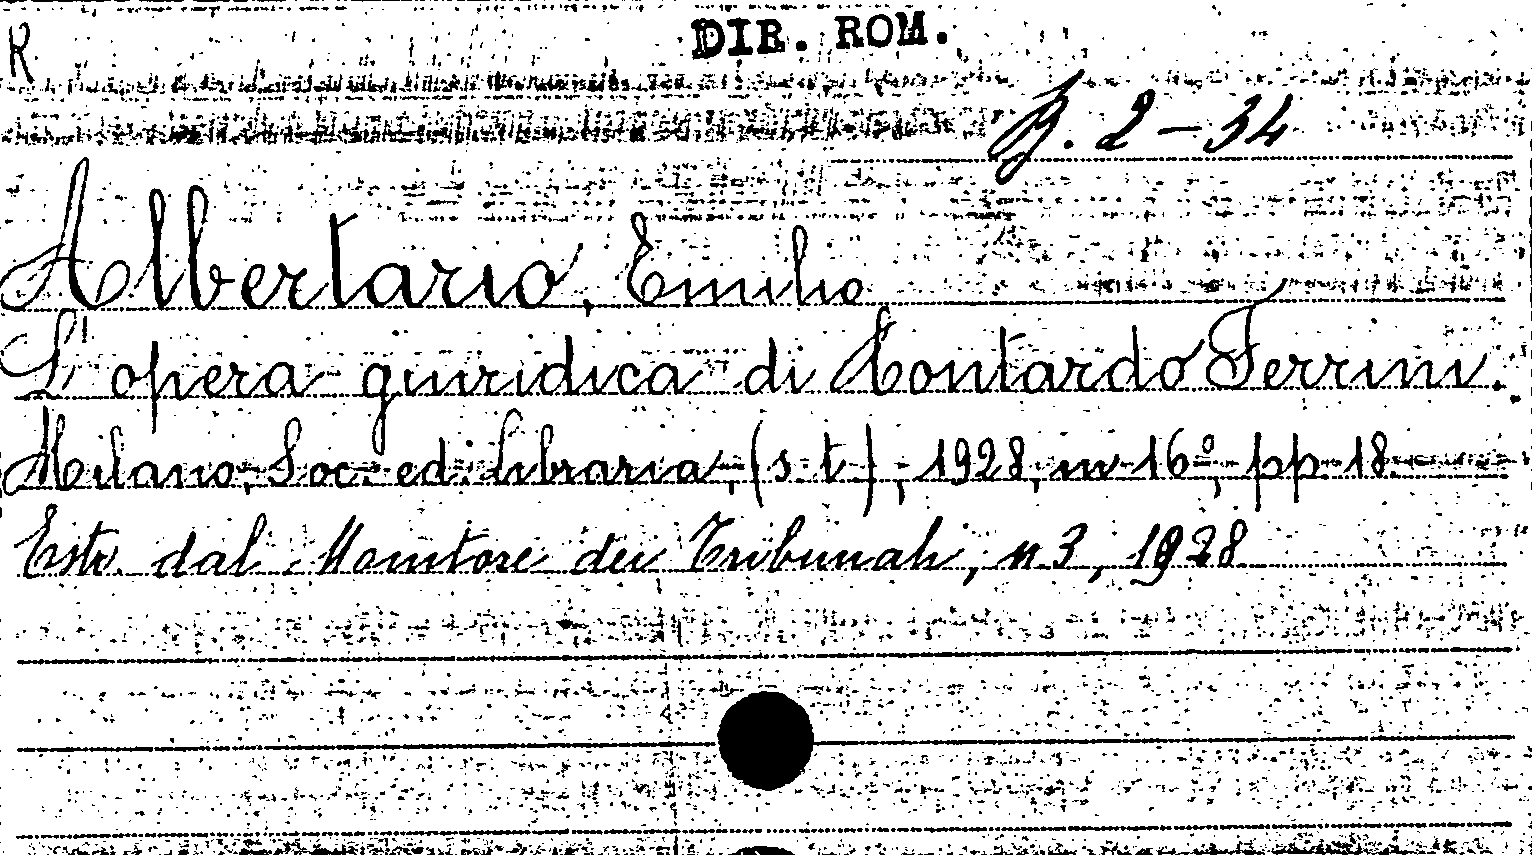 R
DIR. ROM.
B. 2-34
Albertario, Emilio
L'opera giuridica di Contardo Ferrini.
Milano, Soc. ed. Libraria, (s. t.), 1928, in 16º, pp. 18.
Estr. dal Monitore dei Tribunali, n. 3, 1928